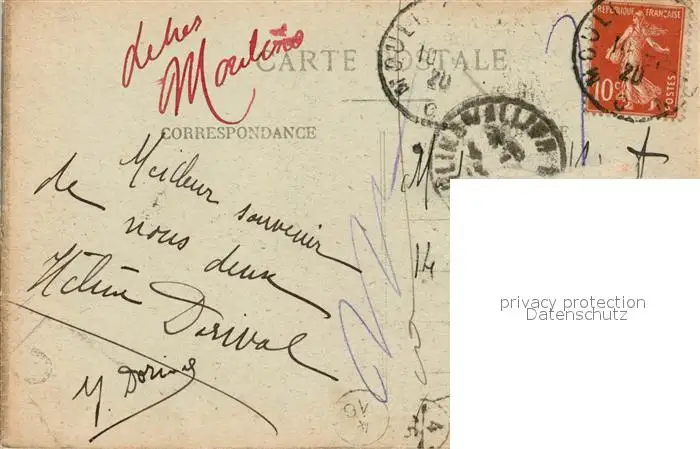 de nos
Moulins
CARTE POSTALE
CORRESPONDANCE
Meilleur souvenir
de nous deux
Hélène Dorival
M. Dorival
MOULI
10
20
RÉPUBLIQUE FRANÇAISE
10c
POSTES
MOUL
20
ALLIER
M
14
privacy protection
Datenschutz